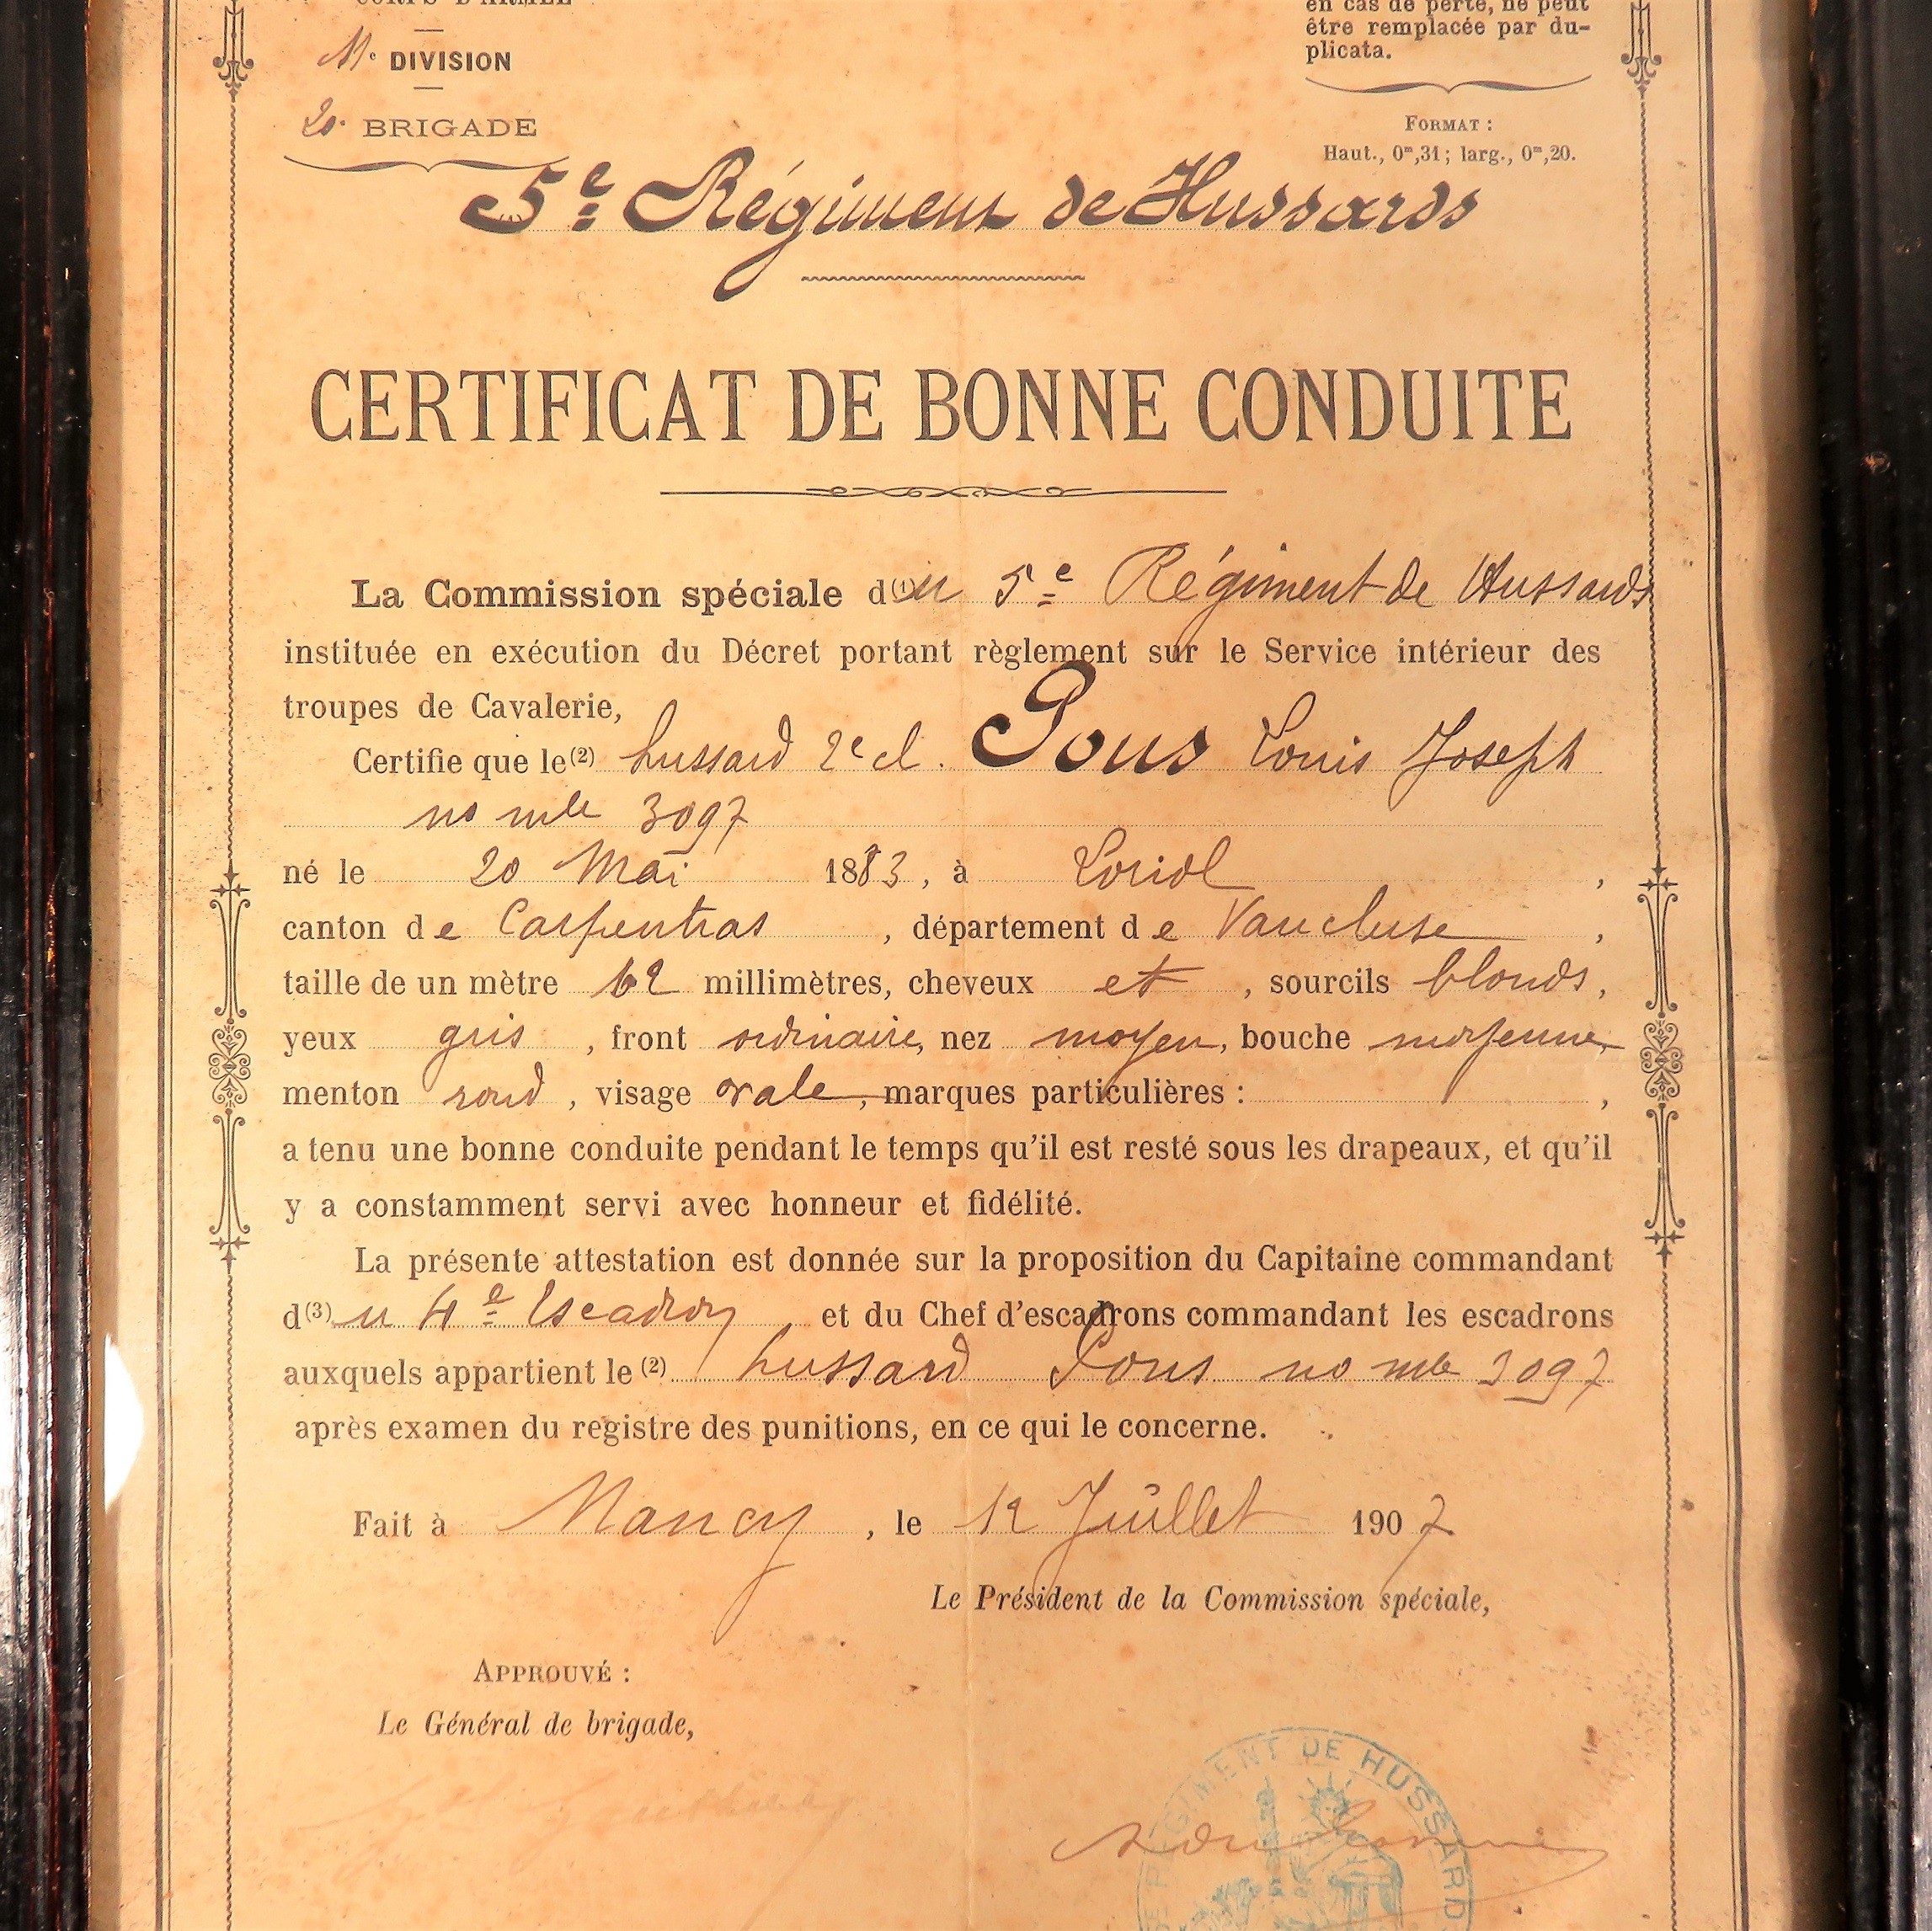 CORPS D'ARMÉE
11e DIVISION
20e BRIGADE
en cas de perte, ne peut
être remplacée par du-
plicata.
FORMAT :
Haut., 0m,31 ; larg., 0m,20.
5e Régiment de Hussards
CERTIFICAT DE BONNE CONDUITE
La Commission spéciale d(1)u 5e Régiment de Hussards
instituée en exécution du Décret portant règlement sur le Service intérieur des
troupes de Cavalerie,
Certifie que le(2) hussard 2e cl. Pons Louis Joseph
no mle 3097
né le 20 Mai 1883, à Loriol,
canton de Carpentras, département de Vaucluse,
taille de un mètre 62 millimètres, cheveux et, sourcils blonds,
yeux gris, front ordinaire, nez moyen, bouche moyenne,
menton rond, visage ovale, marques particulières : ,
a tenu une bonne conduite pendant le temps qu'il est resté sous les drapeaux, et qu'il
y a constamment servi avec honneur et fidélité.
La présente attestation est donnée sur la proposition du Capitaine commandant
d(3)u 4e Escadron et du Chef d'escadrons commandant les escadrons
auxquels appartient le (2) hussard Pons no mle 3097
après examen du registre des punitions, en ce qui le concerne.
Fait à Nancy, le 12 Juillet 1907
Le Président de la Commission spéciale,
APPROUVÉ :
Le Général de brigade,
RÉGIMENT DE HUSSARD